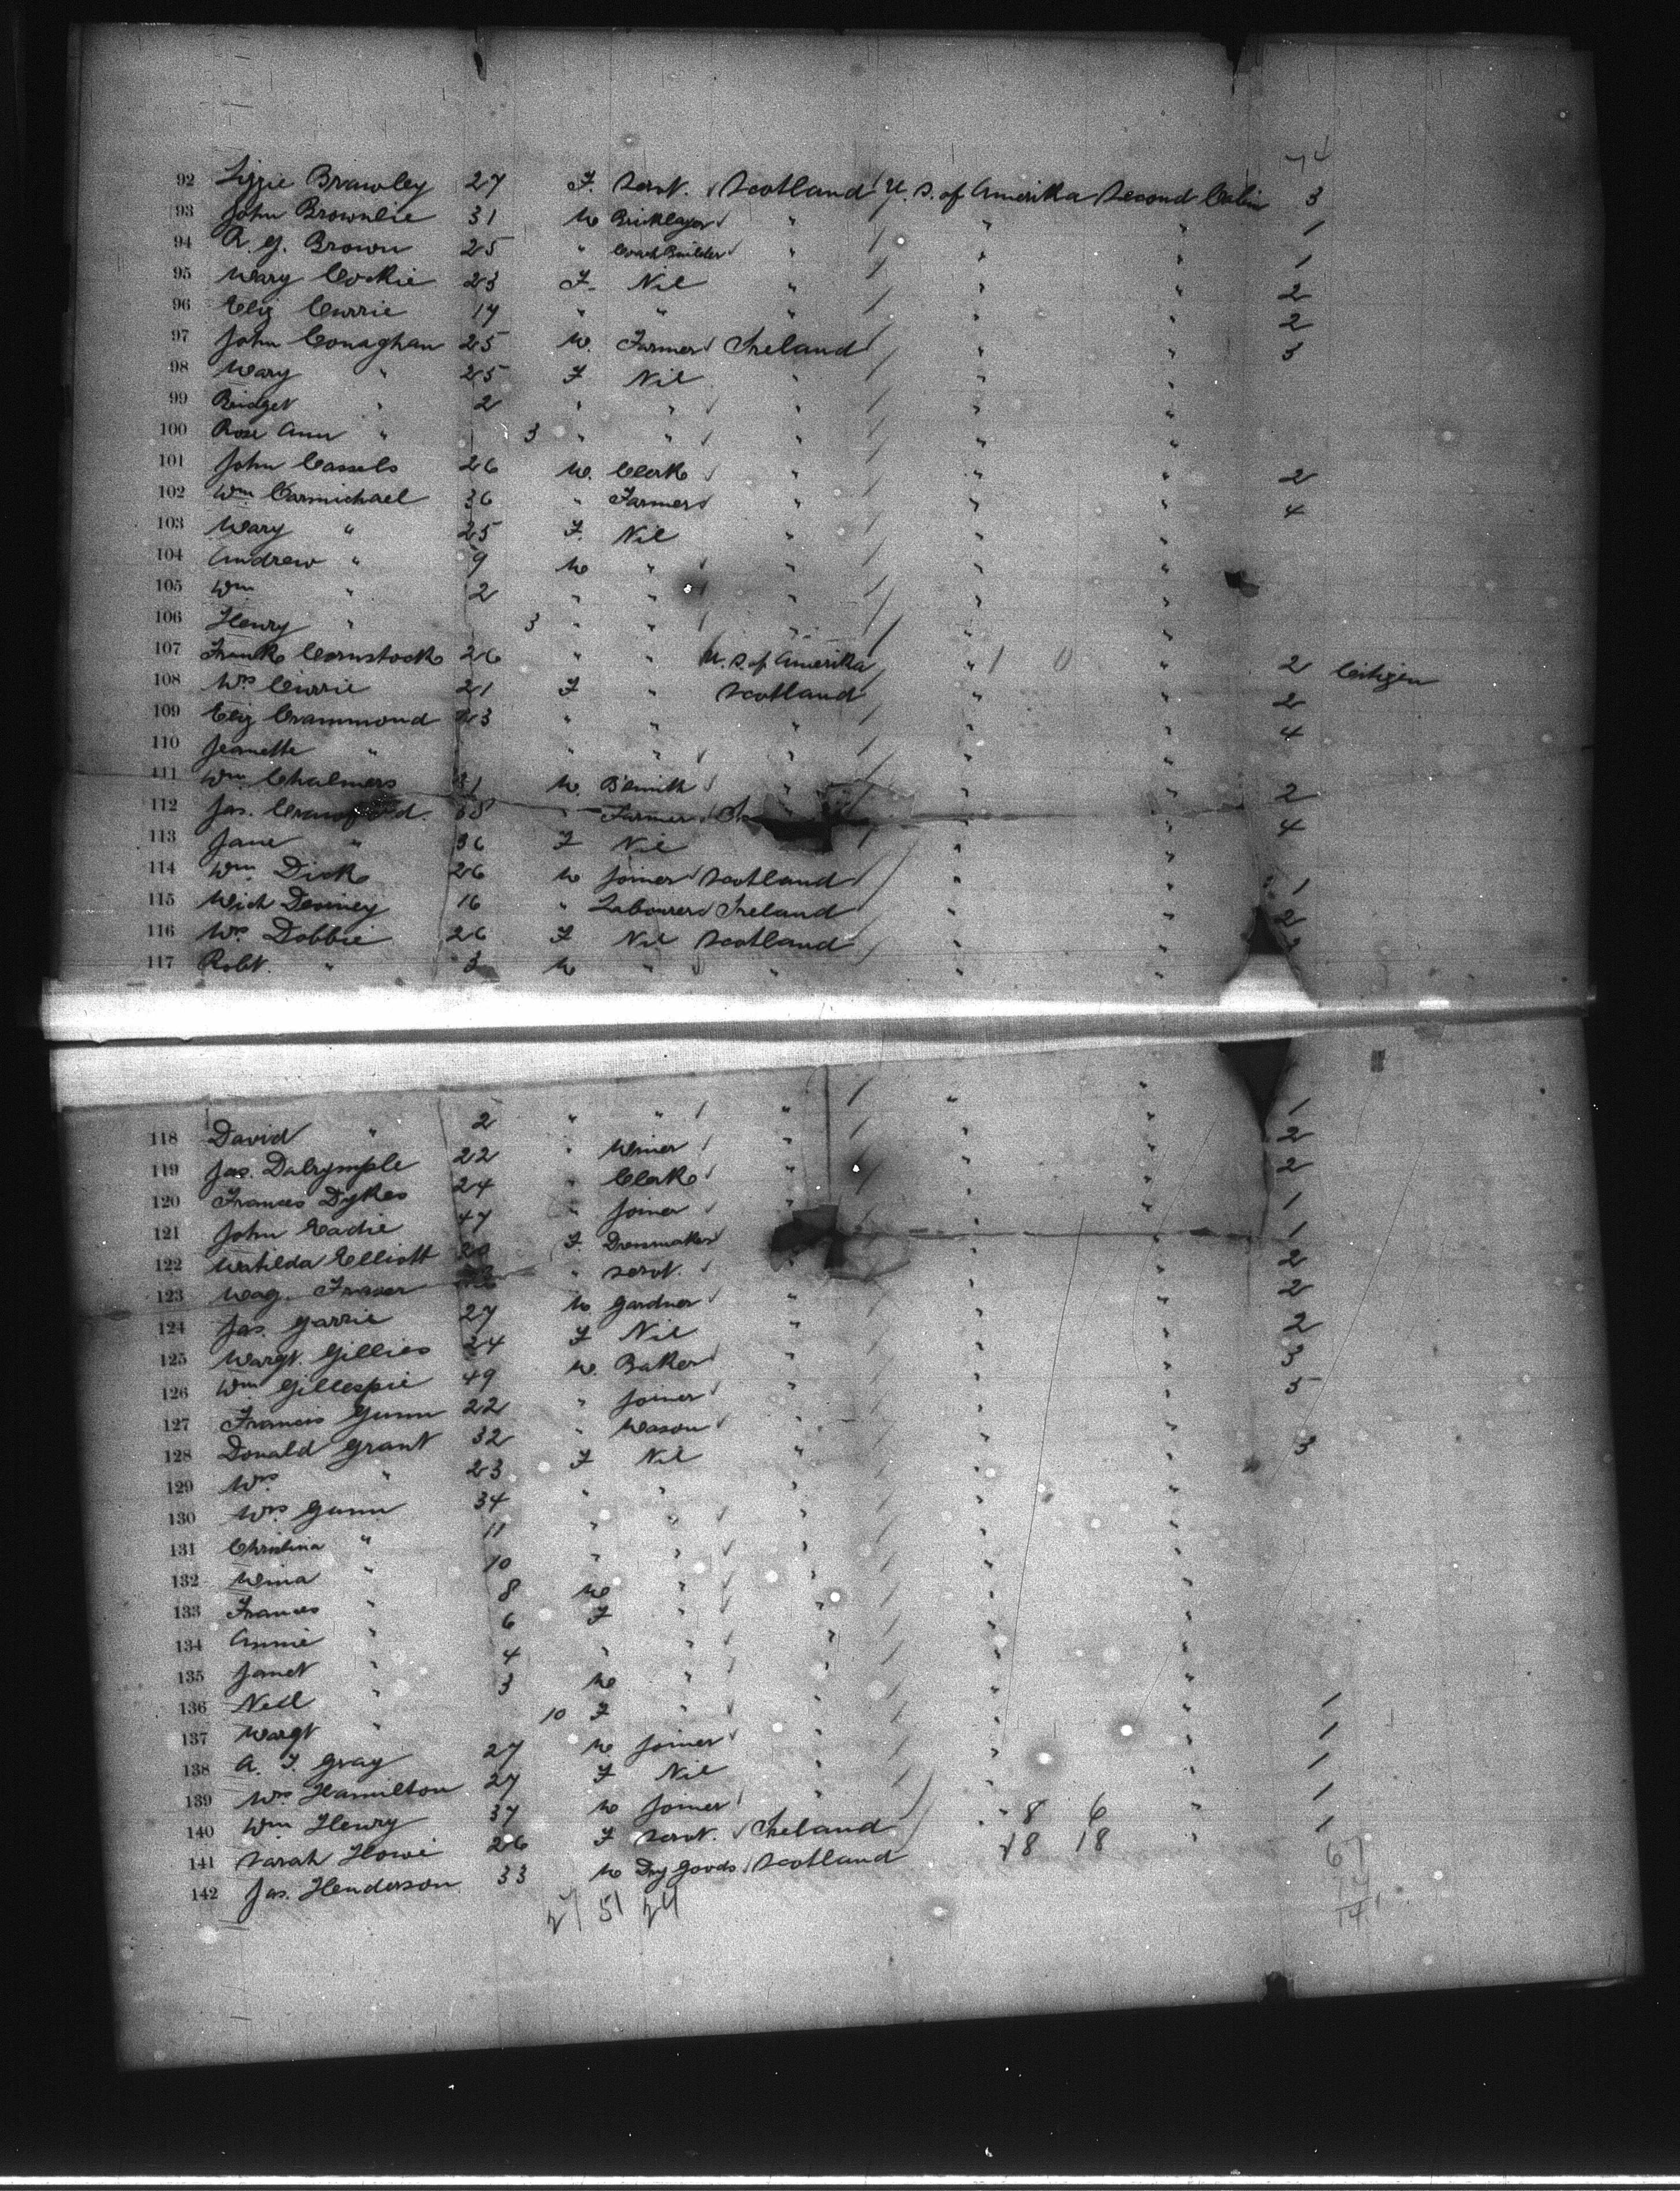 74
92 Lizzie Brawley 27 F. Servt. Scotland U.S. of Amerika Second Cabin 3
93 John Brownlie 31 M Bricklayer " " " 1
94 R. G. Brown 25 " Coach Builder " " " 1
95 Mary Cockie 23 F. Nil " " " 2
96 Eliz Currie 17 " " " " " 2
97 John Conaghan 25 M. Farmer Ireland " " 3
98 Mary " 25 F Nil " " "
99 Bridget " 2 " " " " "
100 Rose Ann " 3 " " " " "
101 John Cassels 26 M. Clerk " " " 2
102 Wm Carmichael 36 " Farmer " " " 4
103 Mary " 25 F. Nil " " "
104 Andrew " 9 M " " " "
105 Wm " 2 " " " " "
106 Henry " 3 " " " " "
107 Frank Comstock 26 " " U.S. of Amerika " 1 0 " 2 Citizen
108 Mrs Currie 21 F " Scotland " " 2
109 Eliz Crammond 23 " " " " " 4
110 Jeanette " " " " " "
111 Wm Chalmers 31 M. B'Smith " " " 2
112 Jas. Crawford. 38 " Farmer " " 4
113 Jane " 36 F Nil " "
114 Wm Dick 26 M Joiner Scotland " " 1
115 Mich Deviney 16 " Labourer Ireland " " 2
116 Mrs Dobbie 26 F Nil Scotland " "
117 Robt. " 3 M " " " "
118 David " 2 " " " " " 1
119 Jas. Dalrymple 22 " Miner " " " 2
120 Frances Dykes 24 " Clerk " " " 2
121 John Eadie 47 " Joiner " " " 1
122 Matilda Elliott 20 F. Dressmaker " " 1
123 Mag. Fraser " Servt. " " 2
124 Jas. Garrie 27 M. Gardner " " " 2
125 Margt. Gillies 24 F Nil " " " 2
126 Wm Gillespie 49 M. Baker " " " 3
127 Francis Gunn 22 " Joiner " " " 5
128 Donald Grant 32 " Mason " " "
129 Mrs " 23 F Nil " " " 3
130 Mrs Gunn 34 " " " " "
131 Christina " 11 " " " " "
132 Mina " 10 " " " " "
133 Frances " 8 M " " " "
134 Annie " 6 F " " " "
135 Janet " 4 " " " " "
136 Neil " 3 M " " " "
137 Margt " 10 F " " " " 1
138 A. F. Gray 27 M Joiner " " " 1
139 Mrs Hamilton 27 F Nil " " " 1
140 Wm Henry 37 M Joiner " " " 1
141 Sarah Howie 26 F Servt. Ireland " 8 6 " 1
142 Jas. Henderson 33 M Dry Goods Scotland 18 18
27 51 24